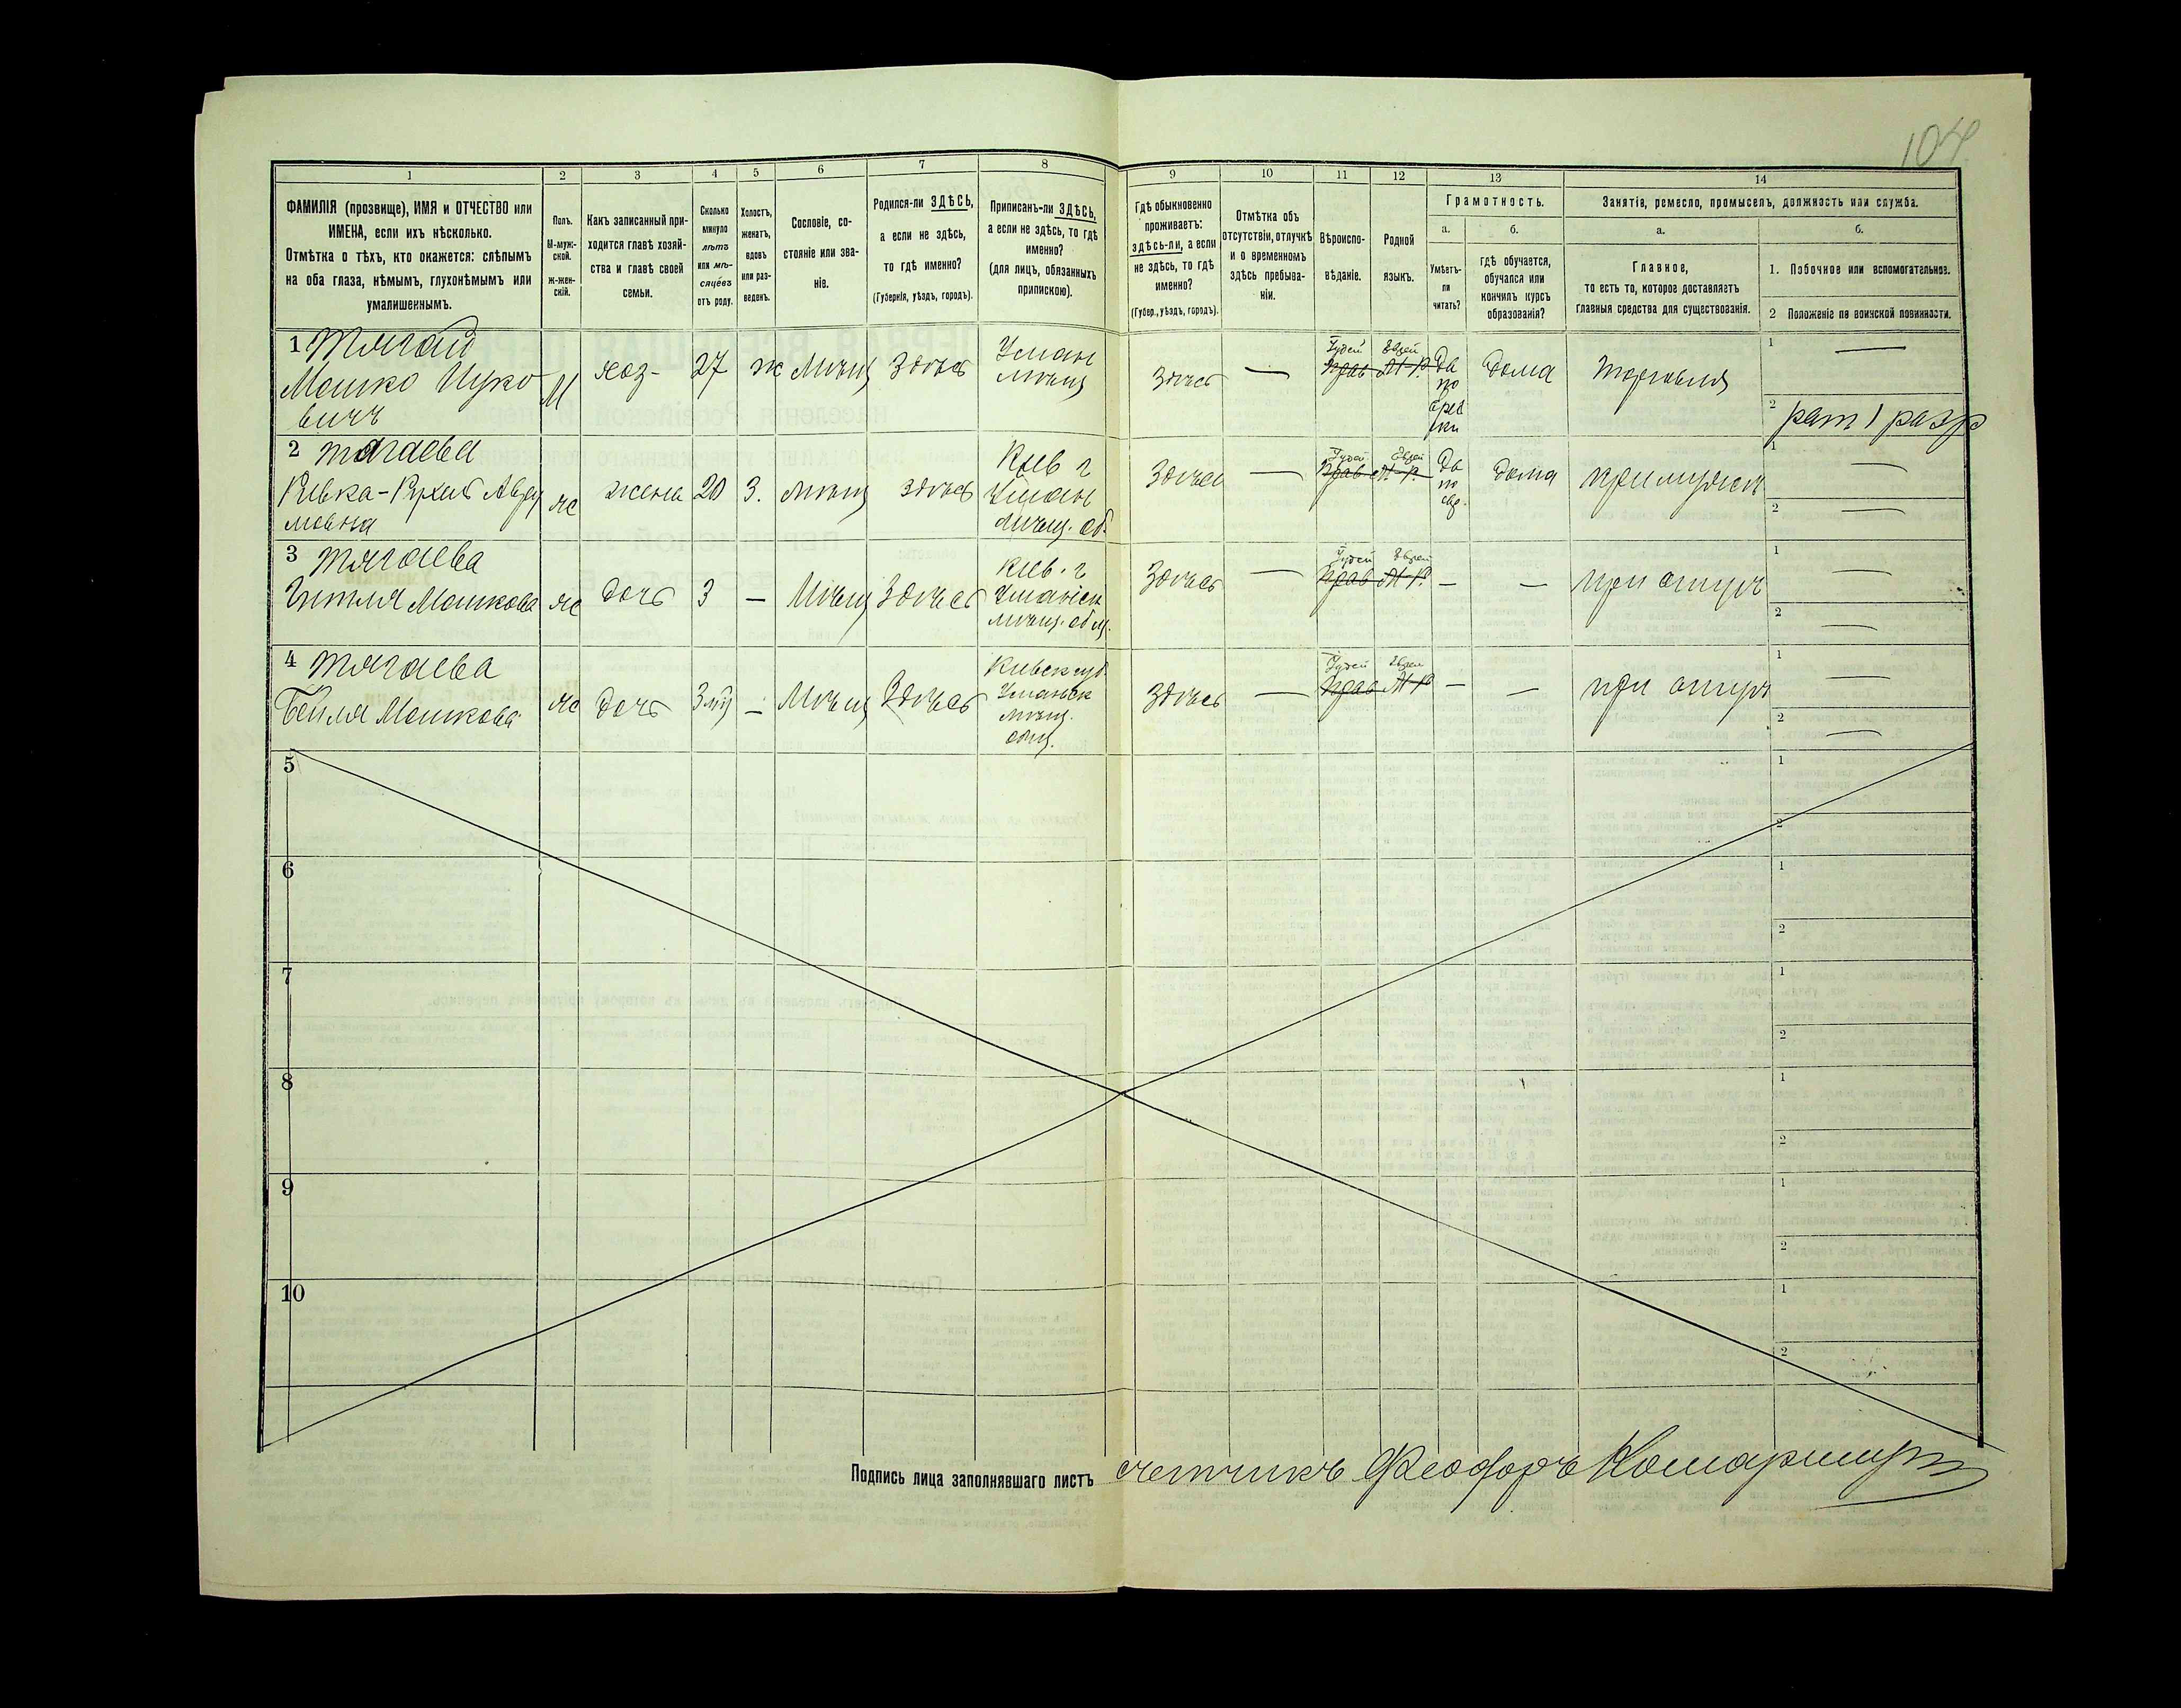 104
1 2 3 4 5 6 7 8 9 10 11 12 13 14
ФАМИЛІЯ (прозвище), ИМЯ и ОТЧЕСТВО или
ИМЕНА, если ихъ нѣсколько.
Отмѣтка о тѣхъ, кто окажется: слѣпымъ
на оба глаза, нѣмымъ, глухонѣмымъ или
умалишеннымъ.
Полъ.
М-муж-
ской.
ж-жен-
скій.
Какъ записанный при-
ходится главѣ хозяй-
ства и главѣ своей
семьи.
Сколько
минуло
лѣтъ
или мѣ-
сяцевъ
отъ роду.
Холостъ,
женатъ,
вдовъ
или раз-
веденъ.
Сословіе, со-
стояніе или зва-
ніе.
Родился-ли ЗДѢСЬ,
а если не здѣсь,
то гдѣ именно?
(Губернія, уѣздъ, городъ).
Приписанъ-ли ЗДѢСЬ,
а если не здѣсь, то гдѣ
именно?
(для лицъ, обязанныхъ
припискою).
Гдѣ обыкновенно
проживаетъ:
здѣсь-ли, а если
не здѣсь, то гдѣ
именно?
(Губер., уѣздъ, городъ).
Отмѣтка объ
отсутствіи, отлучкѣ
и о временномъ
здѣсь пребыва-
ніи.
Вѣроиспо-
вѣданіе.
Родной
языкъ.
Грамотность.
а.
Умѣетъ-
ли
читать?
б.
гдѣ обучается,
обучался или
кончилъ курсъ
образованія?
Занятіе, ремесло, промыселъ, должность или служба.
а.
Главное,
то есть то, которое доставляетъ
главныя средства для существованія.
б.
1. Побочное или вспомогательное.
2 Положеніе по воинской повинности.
1 Тягай
Мошко Ицко
вичъ
М
хоз-
27
ж
Мѣщ
Здѣсь
Уман
мѣщ
Здѣсь
—
Іудей
Прав
Еврей
М-Р.
Да
по
евреѣ
ски
Дома
Торговля
1 —
2 рат 1 разр
2 Тягаева
Ривка-Рухля Авра
мовна
ж
жена
20
З.
мѣщ
здѣсь
Киев г
Уман
Мѣщ. об.
Здѣсь
—
Іудей
Прав
Еврей
М-Р.
Да
по
евр.
Дома
при мужѣ
1 —
2 —
3 Тягаева
Гитля Мошкова
ж
дочь
3
—
Мѣщ
Здѣсь
Киев. г
Уманск
мѣщ. общ.
Здѣсь
—
Іудей
Прав
Еврей
М-Р.
—
—
при отцѣ
1 —
2 —
4 Тягаева
Бейля Мошкова
ж
дочь
—
Мѣщ
Здѣсь
Киевск губ.
Уманск
мѣщ.
общ.
Здѣсь
—
Іудей
Прав
Еврей
М-Р
—
—
при отцѣ
1 —
2 —
5 1 2
6 1 2
7 1 2
8 1 2
9 1 2
10 1 2
Подпись лица заполнявшаго листъ счетчикъ Феодоръ